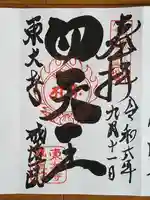 奉拝
令和六年
九月十一日
四天王
東大寺
戒壇院